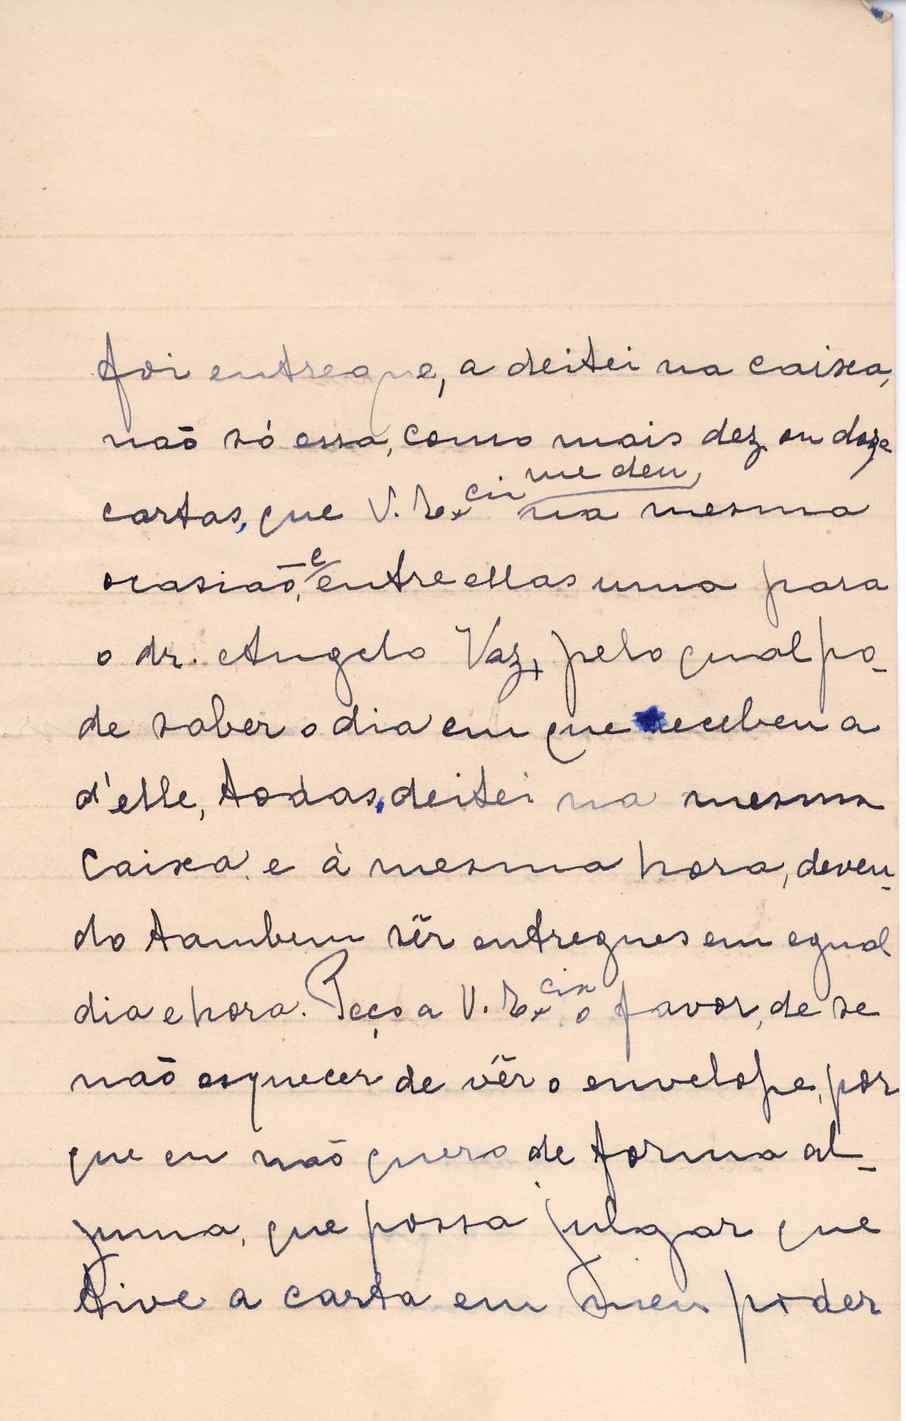 foi entregue, a deitei na caixa,
não só essa, como mais dez ou doze
cartas, que V. Ex.cia me deu, na mesma
ocasião, e entre ellas uma para
o dr. Angelo Vaz, pelo qual po-
de saber o dia em que recebeu a
d'elle, todas, deitei na mesma
caixa, e á mesma hora, deven-
do tambem sêr entregues em egual
dia e hora. Peço a V. Ex.cia o favor, de se
não esquecer de vêr o envelope, por
que eu não quero de forma al-
guma, que possa julgar que
tive a carta em meu poder